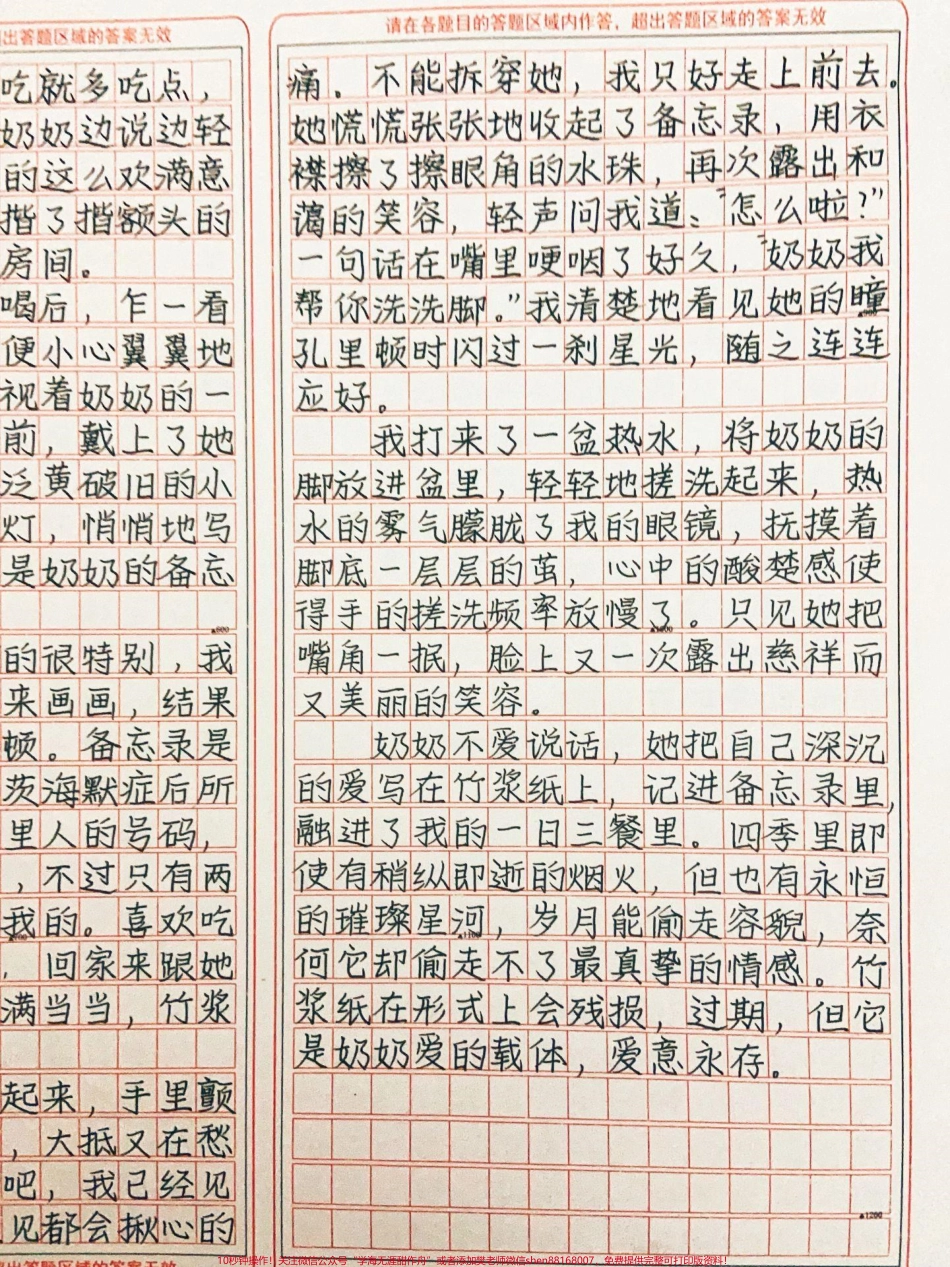 出答题区域的答案无效
吃就多吃点，
奶奶边说边轻
的这么欢满意
揩了揩额头的
房间。
喝后，乍一看
便小心翼翼地
视着奶奶的一
前，戴上了她
泛黄破旧的小
灯，悄悄地写
是奶奶的备忘
▲800
的很特别，我
来画画，结果
顿。备忘录是
茨海默症后所
里人的号码，
，不过只有两
我的。喜欢吃
，回家来跟她
满当当，竹浆
起来，手里颤
，大抵又在愁
吧，我已经见
见都会揪心的
出答题区域的答案无效
请在各题目的答题区域内作答，超出答题区域的答案无效
痛。不能拆穿她，我只好走上前去。
她慌慌张张地收起了备忘录，用衣
襟擦了擦眼角的水珠，再次露出和
蔼的笑容，轻声问我道：“怎么啦？”
一句话在嘴里哽咽了好久，“奶奶我
帮你洗洗脚。”我清楚地看见她的瞳
孔里顿时闪过一刹星光，随之连连
应好。
我打来了一盆热水，将奶奶的
脚放进盆里，轻轻地搓洗起来，热
水的雾气朦胧了我的眼镜，抚摸着
脚底一层层的茧，心中的酸楚感使
得手的搓洗频率放慢了。只见她把
嘴角一抿，脸上又一次露出慈祥而
又美丽的笑容。
奶奶不爱说话，她把自己深沉
的爱写在竹浆纸上，记进备忘录里，
融进了我的一日三餐里。四季里即
使有稍纵即逝的烟火，但也有永恒
的璀璨星河，岁月能偷走容貌，奈
▲1100
何它却偷走不了最真挚的情感。竹
浆纸在形式上会残损，过期，但它
是奶奶爱的载体，爱意永存。
▲1200
10秒钟操作!！关注微信公众号“学海无涯甜作舟”或者添加樊老师微信shen88168007，免费提供完整可打印版资料!